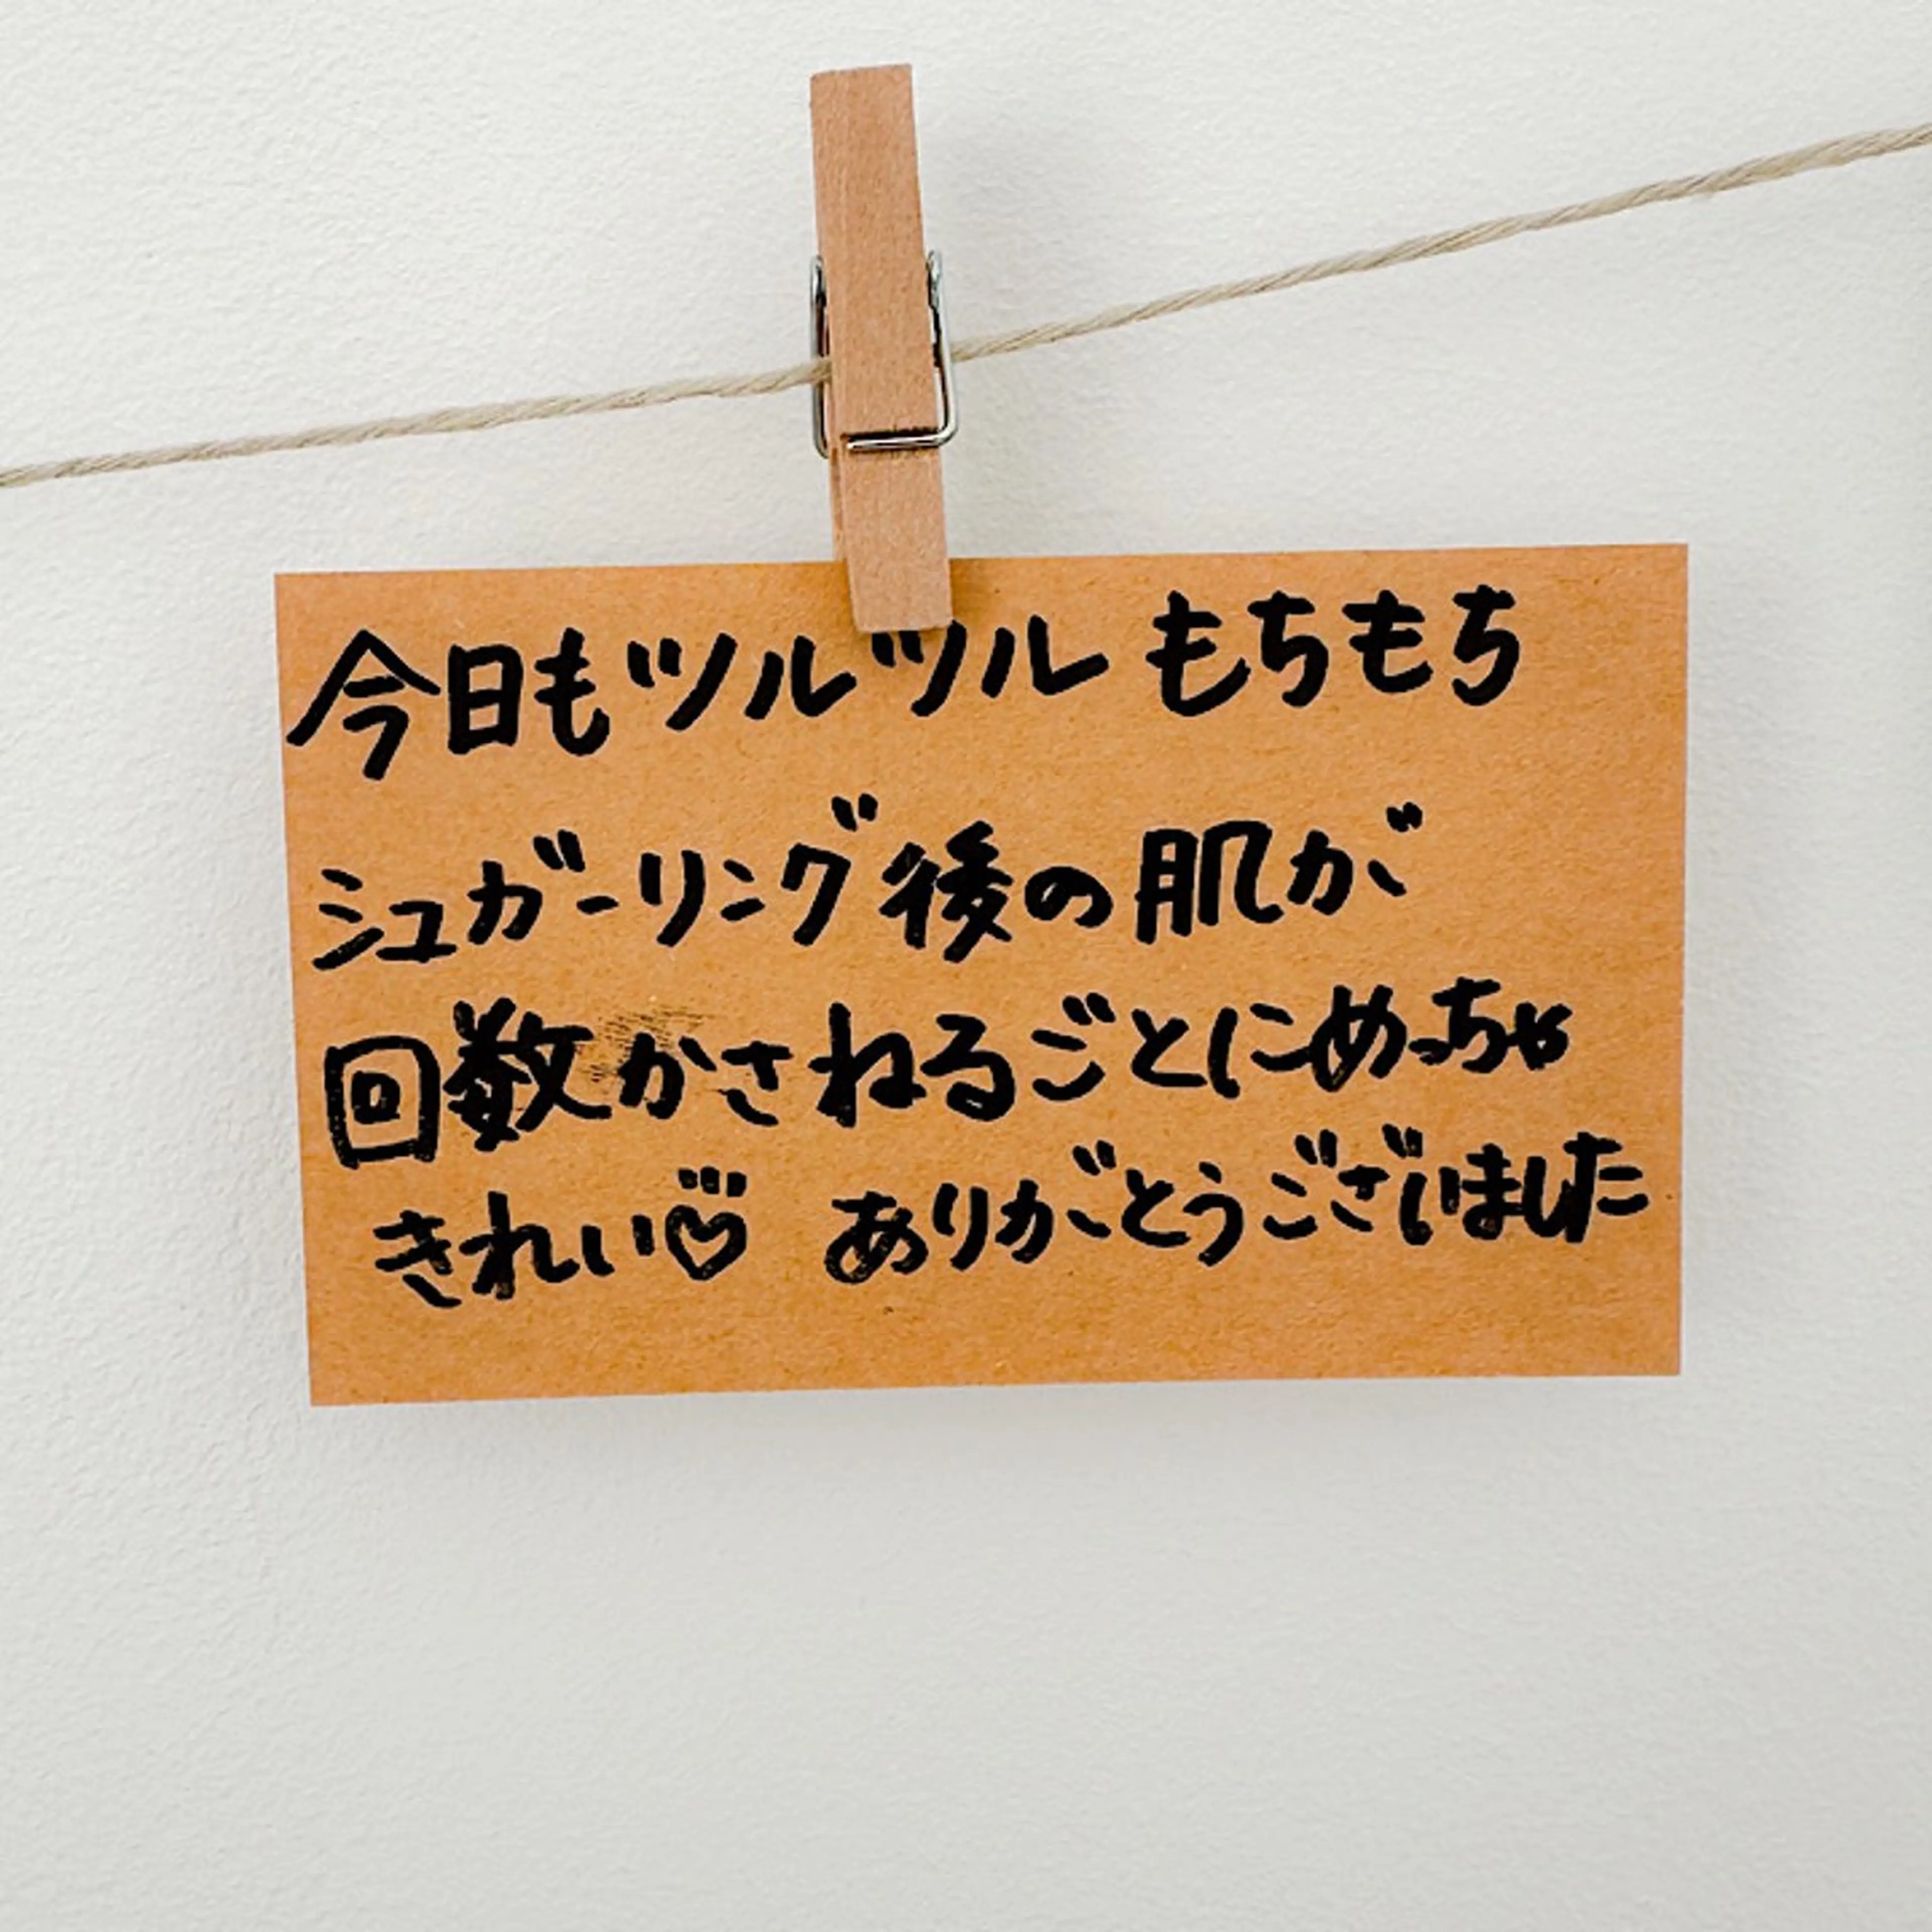 今日もツルツル もちもち
シュガーリング後の肌が
回数かさねるごとにめっちゃ
きれい♡ ありがとうございました